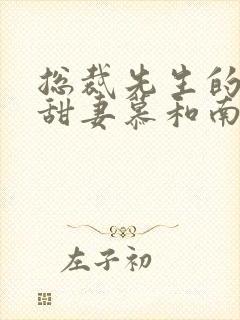 总裁先生的
甜妻慕和南
左子初